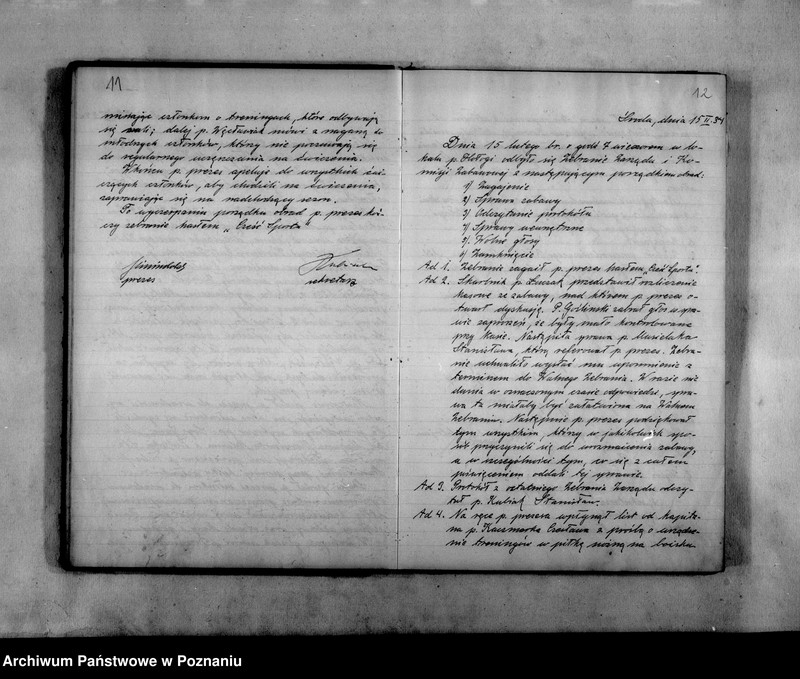 11
minając członkom o treningach, które odbywają
się sali; dalej p. Węcławiak mówi z naganą do
młodych członków, którzy nie poczuwają się
do regularnego uczęszczania na ćwiczenia.
Wkońcu p. prezes apeluje do wszystkich ćwi-
czących członków, aby chodzili na ćwiczenia,
zaprawiając się na nadchodzący sezon.
Po wyczerpaniu porządku obrad p. prezes koń-
czy zebranie hasłem „Cześć Sportu"
prezes sekretarz
12
Środa, dnia 15 II. 34
Dnia 15 lutego br. o godz 7 wieczorem w lo-
kalu p. odbyło się Zebranie Zarządu i Ko-
misji Zabawowej z następującym porządkiem obrad:
1) Zagajenie
2) Sprawa zabawy
3) Odczytanie protokółu
4) Sprawy wewnętrzne
5) Wolne głosy
6) Zamknięcie
Ad 1. Zebranie zagaił p. prezes hasłem „Cześć Sportu".
Ad 2. Skarbnik p. Łuczak przedstawił rozliczenie
kasowe ze zabawy, nad którem p. prezes o-
twarł dyskusję. P. Gośliński zabrał głos w spra-
wie zaproszeń, że były mało kontrolowane
przy kasie. Następnie sprawa p. Musielaka
Stanisława, który referował p. prezes. Zebra-
nie uchwaliło wysłać mu upomnienie z
terminem do Walnego Zebrania. W razie nie
dania w oznaczonym czasie odpowiedzi, spra-
wa ta miałaby być załatwiona na Walnem
Zebraniu. Następnie p. prezes podziękował
tym wszystkim, którzy w jakikolwiek spo-
sób przyczynili się do urozmaicenia zabawy,
a w szczególności tym, co się z całem
poświęceniem oddali tej sprawie.
Ad 3. Protokół z ostatniego Zebrania Zarządu odczy-
tał p. Kubiak Stanisław.
Ad 4. Na ręce p. prezesa wpłynął list od kapita-
na p. Kaczmarka Czesława z prośbą o urządze-
nie treningów w piłkę nożną na boisku
Archiwum Państwowe w Poznaniu